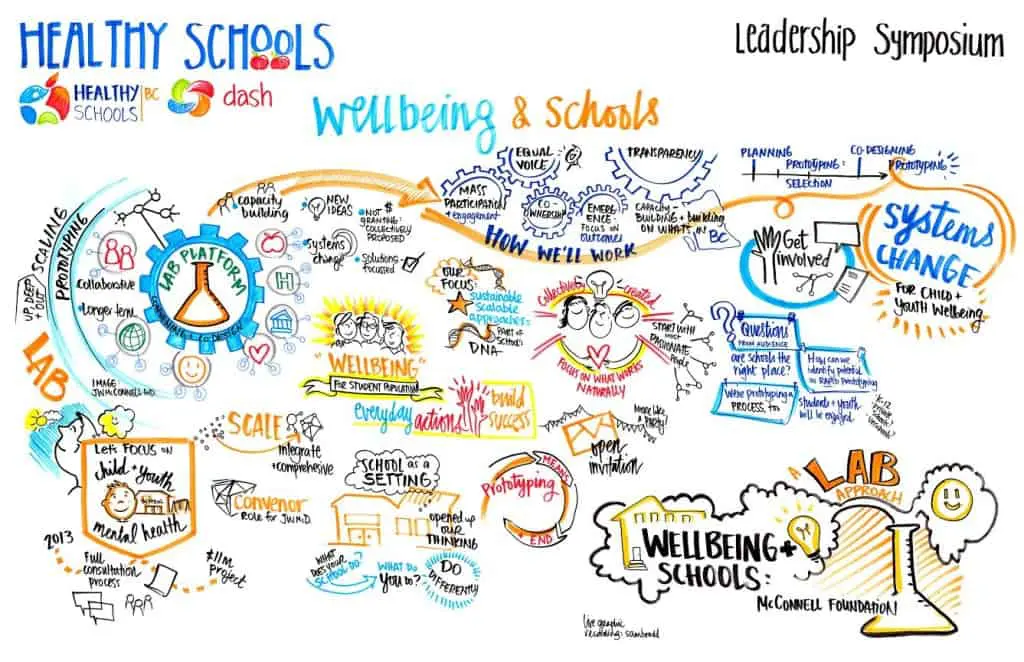 HEALTHY SCHOOLS
Leadership Symposium
HEALTHY
SCHOOLS
BC
dash
Wellbeing & Schools
UP, DEEP
+ OUT
SCALING
PROTOTYPING
LAB
Collaborative
Longer term
LAB PLATFORM
CONVENING + CO-DESIGN
H
IMAGE
capacity
building
NEW
IDEAS
systems
change
NOT $
GRANTING:
COLLECTIVELY
PROPOSED
Solutions
focussed
MASS
PARTICIPATION
+ engagement
EQUAL
VOICE
CO-
OWNERSHIP
EMERG
ENCE:
FOCUS ON
outcomes
TRANSPARENCY
CAPACITY-
BUILDING + building
ON WHAT'S IN
BC
HOW WE'LL WORK
PLANNING
PROTOTYPING:
SELECTION
CO-DESIGNING
PROTOTYPING
Get
involved
SYSTEMS
CHANGE
FOR CHILD +
YOUTH Wellbeing
OUR
FOCUS:
sustainable
scalable
approaches:
PART OF
SCHOOL'S
DNA
Collectively created
FOCUS ON WHAT WORKS
NATURALLY
START WITH
MOST
PASSIONATE
People
"WELLBEING"
FOR STUDENT POPULATION
everyday
actions
build
success
?
Questions
FROM AUDIENCE
are schools the
right place?
How can we
identify potential
in RAPID prototyping
We're prototyping a
PROCESS, too
Students + youth
will be engaged
More like a
Party!
open
invitation
LET'S FOCUS ON
child + youth
mental health
2013
Full
consultation
process
$11M
PROJECT
SCALE
integrate
+ comprehensive
CONVENOR
ROLE FOR
SCHOOL as a
SETTING
opened up
our
THINKING
WHAT
DOES your
SCHOOL DO?
WHAT DO
YOU DO?
DO
DIFFERENTLY
Prototyping
MEANS
+ END
A
LAB
APPROACH
WELLBEING +
SCHOOLS:
McCONNELL FOUNDATION
live graphic
recording: